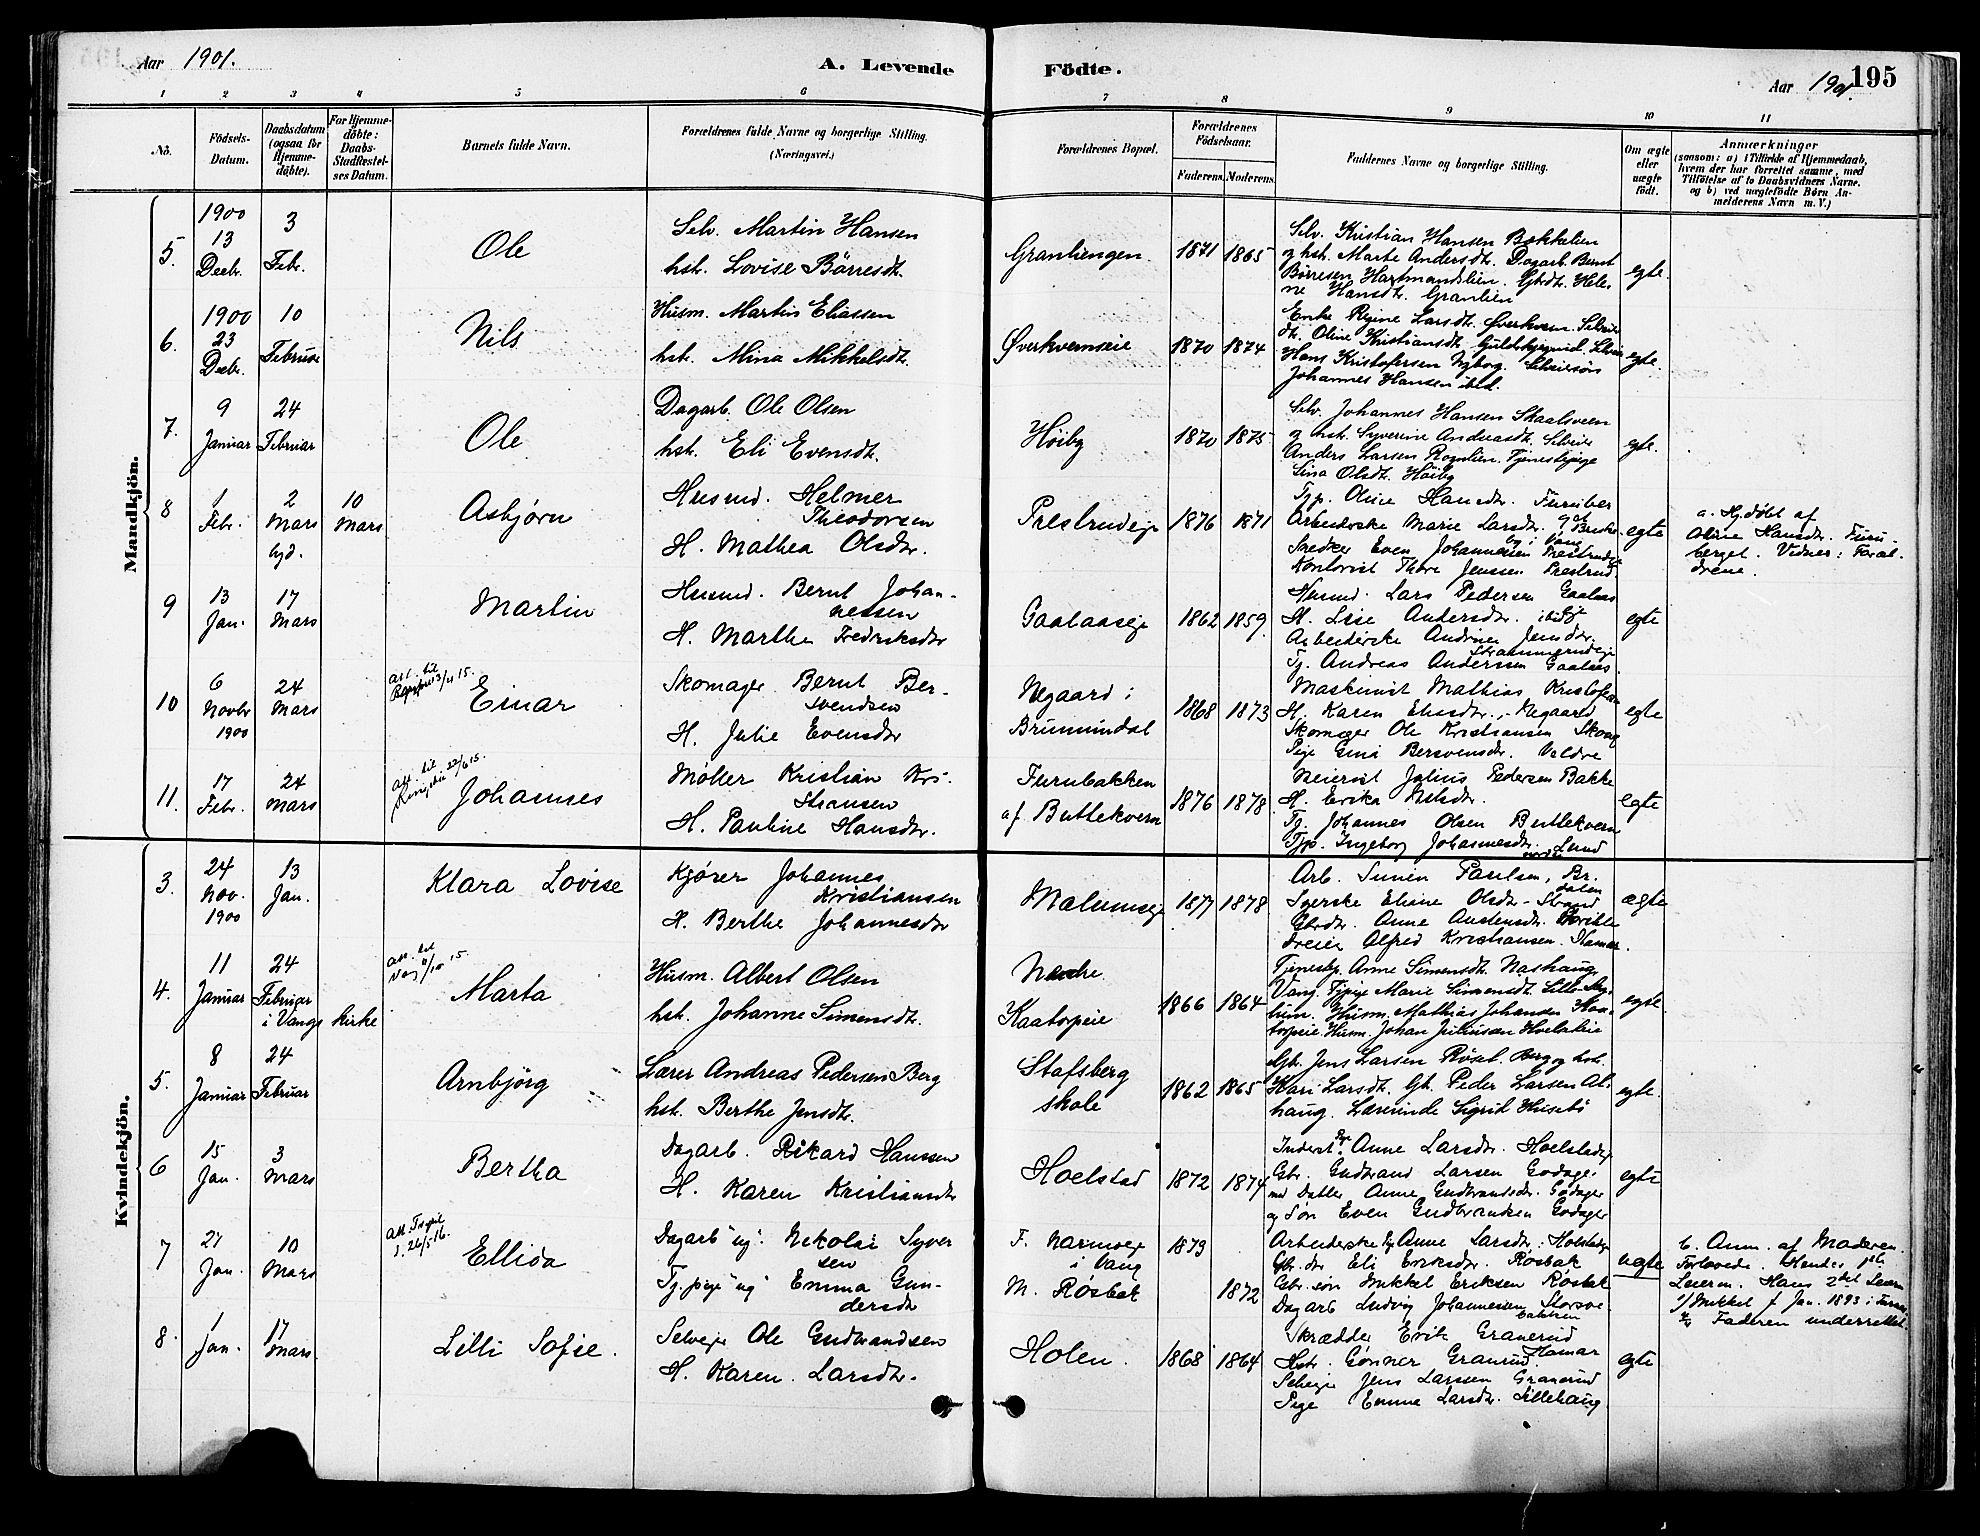 Aar 1901.
A. Levende Födte.
Aar 1901.
195
1 2 3 4 5 6 7 8 9 10 11
No.
Födsels-
Datum.
Daabsdatum
(ogsaa for
Hjemme-
döbte).
For Hjemme-
döbte:
Daabs-
Stadfæstel-
ses Datum.
Barnets fulde Navn.
Forældrenes fulde Navne og borgerlige Stilling.
(Næringsvei.)
Forældrenes Bopæl.
Forældrenes
Födselsaar.
Faderens. Moderens.
Faddernes Navne og borgerlige Stilling.
Om ægte
eller
uægte
födt.
Anmærkninger
(saasom: a) i Tilfælde af Hjemmedaab,
hvem der har forrettet samme, med
Tilföielse af to Daabsvidners Navne.
og b) ved uægtefödte Börn An-
melderens Navn m. V.)
Mandkjön.
5.
1900
13
Decbr.
3
Febr.
Ole
Selv. Martin Hansen
hst. Lovise Börresdt.
Granliengen.
1871
1865
Selv. Kristian Hansen Bakkelien
og hst. Marte Andersdt. Dagarb. Bernt
Börresen Hartmandslien. Gbrdt. Hele-
ne Hansdt. Granlien
egte.
6.
1900
23
Decbr.
10
Februar
Nils
Husm. Martin Eliassen
hst. Mina Mikkelsdt.
Øverkvernseie
1870
1874
Enke Regine Larsdt. Øverkvern.
dt. Oline Kristiansdt.
Hans Kristofersen Nybog. Selveiersön
Johannes Hansen ibid.
egte.
7.
9
Januar
24
Februar
Ole
Dagarb. Ole Olsen
hst. Eli Evensdt.
Höiby
1870
1875
Selv. Johannes Hansen Skaalsveen
og hst. Syverine Andreasdt. Selveier
Anders Larsen Rognlien. Tjenestepige
Lina Olsdt. Höiby
egte.
8
1
Febr.
2
Mars
hjd.
10
Mars
Asbjørn
Husmd. Helmer
Theodorsen
H. Mathea Olsdtr.
Prestrudeje
1876
1871
Tjp. Oline Hansdtr. Furuber
get
Arbeiderske Marie Larsdtr. Bruse-
by i Vang
Snedker Even Johannessen Prestrudeje
Kontorist Thore Jenssen Prestrud.
egte
a. Hj.døbt af
Oline Hansdtr. Furu-
berget. Vidner: Foræl-
drene.
9
13
Jan.
17
Mars
Martin
Husmd. Bernt Johan-
nessen
H. Marthe Fredriksdtr
Gaalaaseje
1862
1859.
Husmd. Lars Pedersen Gaalaas
H. Lise Andersdtr. ibid
Arbeiderske Andrine Jensdtr.
Strammerudeje
Tj. Andreas Andersen Gaalaas.
egte
10
6
Novbr
1900
24
Mars
att. til
13/4 15.
Einar
Skomager Bernt Ber-
svendsen
H. Julie Evensdtr
Negaard i
Brumundal
1868
1873
Maskinist Mathias Kristofersen
H. Karen Eliasdtr. - Negaard
Skomager Ole Kristiansen Skoug
Pige Gina Bersvensdtr. Valdre
egte
11.
17
Febr.
24
Mars
Att. til
22/6 15.
Johannes
Møller Kristian Kri-
stiansen
H. Pauline Hansdtr.
Furubakken
af Buttekvern
1876
1878
Meierist Julius Pedersen Bakke
H. Erika Nilsdtr.
Tj. Johannes Olsen Buttekvern
Tjp. Ingeborg Johannesdtr. Lund
nordre
egte
Kvindekjön.
3.
24
Nov.
1900
13
Jan.
Klara Lovise
Kjører Johannes
Kristiansen
H. Berthe Johannesdtr
Malumseje
1877
1878
Arb. Simen Paulsen, Br.
dalen
Syerske Eliane Olsdtr - Strand
Gbrdtr. Anne Austensdtr.
dreier Alfred Kristiansen. Hamar.
ægte
4.
11
Januar
24
Februar
i Vangs Kirke
att. til
Vang 11/10 15.
Marta
Husm. Albert Olsen
hst. Johanne Simensdt.
Nedre
Kaatorpeie
1866
1864
Tjenestep. Anne Simensdt. Nashaug,
Vang. Tjpige Marie Simensdt.
Husm. Mathias Johansen Kaa-
torpeie Husm. Johan Juliussen Hoelstadeie
egte.
5.
8
Januar
24
Februar
Arnbjörg
Lærer Andreas Pedersen Berg
hst. Berthe Jensdt.
Stafsberg
skole
1862
1865
Gbr. Jens Larsen Røset. Berg og hst.
Kari Larsdt. Gb. Peder Larsen Al-
haug. Lærerinde Sigrid Husebö
egte.
6
15
Jan.
3
Mars
Bertha
Dagarb. Rikard Hanssen
H. Karen Kristiansdtr
Hoelstad
1872
1874
Inderst Pge Anne Larsdtr. Hoelstadeje
Gbr. Gudbrand Larsen Godager
med Datter Anne Gudbrandsdtr. Godager
og Søn Even Gudbrandsen Godager
egte
7
27
Jan.
10
Mars
att.
26/5 16.
Ellida
Dagarb "ug". Nikolai Syver
sen
Tj.pige "ug" Emma Gun-
dersdtr
F. Narmoeje
i Vang
M. Røsbak
1873
1872
Arbeiderske Pg Anne Larsdtr. Hoelstadeje
Gbr.dtr Eli Eriksdtr. Røsbak
Gbr.søn Mikkel Eriksen Røsbak
Dagarb Ludvig Johannessen Storsve-
bakken
uegte
b. Anm. af Moderen.
Forlovede. Hendes 1ste
Leierm. Hans 2det Leierm
1/ Mikkel f. Jan. 1893 i Furnes
2/3 Faderen underrettet.
8
1
Jan.
17
Mars.
Lilli Sofie.
Selveje Ole Gudbrandsen
H. Karen Larsdtr.
Holen.
1868
1864
Skrædder Erik Granerud
Hamar
Hstr. Gønner Granerud.
Selveje Jens Larssen Granerud
Pige Emma Larsdtr. Lillehaug
egte